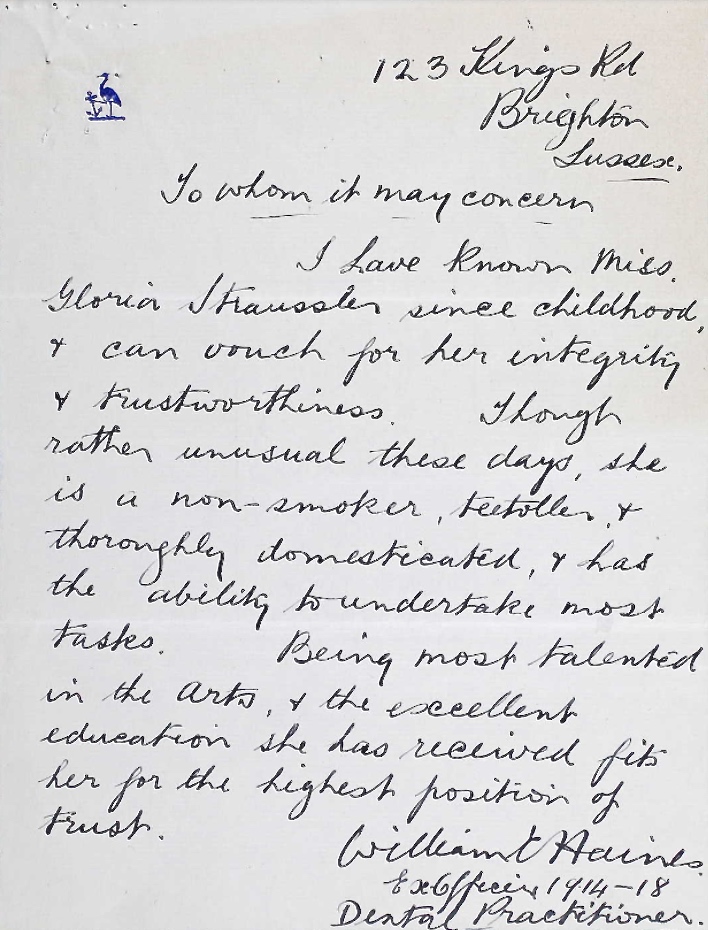 123 Kings Rd
Brighton
Sussex.
To whom it may concern
I have known Miss.
Gloria Straussler since childhood,
& can vouch for her integrity
& trustworthiness. Though
rather unusual these days, she
is a non-smoker, teetoller, &
thoroughly domesticated, & has
the ability to undertake most
tasks. Being most talented
in the Arts, & the excellent
education she has received fits
her for the highest position of
trust.
William E Haines.
Ex Officer 1914-18
Dental Practitioner.